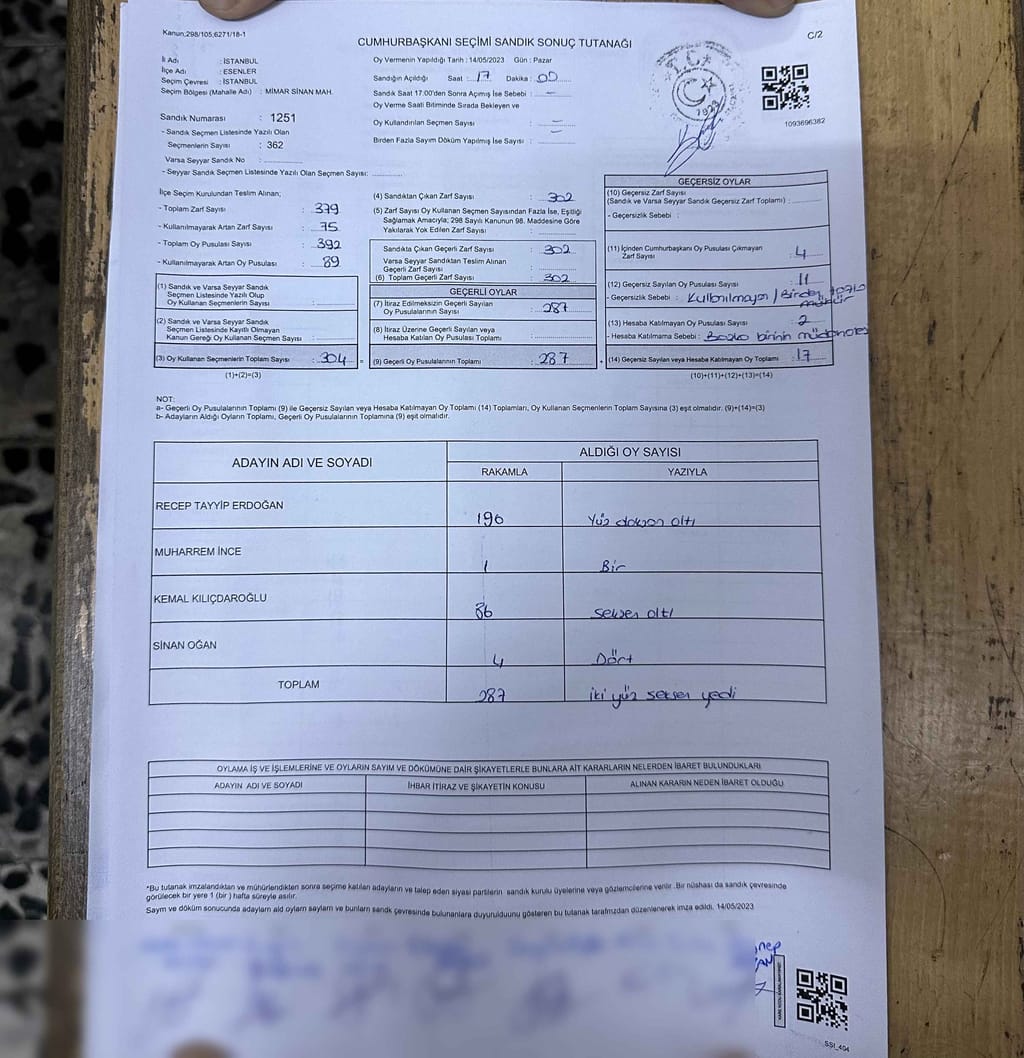 Kanun,298/105,6271/18-1
C/2
CUMHURBAŞKANI SEÇİMİ SANDIK SONUÇ TUTANAĞI
İl Adı : İSTANBUL
İlçe Adı : ESENLER
Seçim Çevresi : İSTANBUL
Seçim Bölgesi (Mahalle Adı) : MİMAR SİNAN MAH.
Sandık Numarası : 1251
- Sandık Seçmen Listesinde Yazılı Olan
Seçmenlerin Sayısı : 362
Varsa Seyyar Sandık No :
- Seyyar Sandık Seçmen Listesinde Yazılı Olan Seçmen Sayısı:
Oy Vermenin Yapıldığı Tarih : 14/05/2023 Gün : Pazar
Sandığın Açıldığı Saat : 17 Dakika : 00
Sandık Saat 17.00'den Sonra Açmış İse Sebebi : –
Oy Verme Saati Bitiminde Sırada Bekleyen ve
Oy Kullandırılan Seçmen Sayısı : –
Birden Fazla Sayım Döküm Yapılmış İse Sayısı : –
T.C.
1923
1093696382
İlçe Seçim Kurulundan Teslim Alınan;
- Toplam Zarf Sayısı : 379
- Kullanılmayarak Artan Zarf Sayısı : 75
- Toplam Oy Pusulası Sayısı : 392
- Kullanılmayarak Artan Oy Pusulası : 89
(1) Sandık ve Varsa Seyyar Sandık
Seçmen Listesinde Yazılı Olup
Oy Kullanan Seçmenlerin Sayısı :
(2) Sandık ve Varsa Seyyar Sandık
Seçmen Listesinde Kayıtlı Olmayan
Kanun Gereği Oy Kullanan Seçmen Sayısı :
(3) Oy Kullanan Seçmenlerin Toplam Sayısı : 304 =
(1)+(2)=(3)
(4) Sandıktan Çıkan Zarf Sayısı : 302
(5) Zarf Sayısı Oy Kullanan Seçmen Sayısından Fazla İse, Eşitliği
Sağlamak Amacıyla; 298 Sayılı Kanunun 98. Maddesine Göre
Yakılarak Yok Edilen Zarf Sayısı :
Sandıkta Çıkan Geçerli Zarf Sayısı : 302
Varsa Seyyar Sandıktan Teslim Alınan
Geçerli Zarf Sayısı :
(6) Toplam Geçerli Zarf Sayısı : 302
GEÇERLİ OYLAR
(7) İtiraz Edilmeksizin Geçerli Sayılan
Oy Pusulalarının Sayısı : 287
(8) İtiraz Üzerine Geçerli Sayılan veya
Hesaba Katılan Oy Pusulası Toplamı :
(9) Geçerli Oy Pusulalarının Toplamı : 287 +
GEÇERSİZ OYLAR
(10) Geçersiz Zarf Sayısı
(Sandık ve Varsa Seyyar Sandık Geçersiz Zarf Toplamı) :
- Geçersizlik Sebebi :
(11) İçinden Cumhurbaşkanı Oy Pusulası Çıkmayan
Zarf Sayısı : 4
(12) Geçersiz Sayılan Oy Pusulası Sayısı : 11
- Geçersizlik Sebebi : Kullanılmayan / Birden fazla
mühür
(13) Hesaba Katılmayan Oy Pusulası Sayısı : 2
- Hesaba Katılmama Sebebi : Başka birinin
(14) Geçersiz Sayılan veya Hesaba Katılmayan Oy Toplamı : 17
(10)+(11)+(12)+(13)=(14)
NOT:
a- Geçerli Oy Pusulalarının Toplamı (9) ile Geçersiz Sayılan veya Hesaba Katılmayan Oy Toplamı (14) Toplamları, Oy Kullanan Seçmenlerin Toplam Sayısına (3) eşit olmalıdır. (9)+(14)=(3)
b- Adayların Aldığı Oyların Toplamı, Geçerli Oy Pusulalarının Toplamına (9) eşit olmalıdır.
ADAYIN ADI VE SOYADI
ALDIĞI OY SAYISI
RAKAMLA YAZIYLA
RECEP TAYYİP ERDOĞAN 196 Yüz doksan altı
MUHARREM İNCE 1 Bir
KEMAL KILIÇDAROĞLU 86 seksen altı
SİNAN OĞAN 4 Dört
TOPLAM 287 iki yüz seksen yedi
OYLAMA İŞ VE İŞLEMLERİNE VE OYLARIN SAYIM VE DÖKÜMÜNE DAİR ŞİKAYETLERLE BUNLARA AİT KARARLARIN NELERDEN İBARET BULUNDUKLARI
ADAYIN ADI VE SOYADI İHBAR İTİRAZ VE ŞİKAYETİN KONUSU ALINAN KARARIN NEDEN İBARET OLDUĞU
*Bu tutanak imzalandıktan ve mühürlendikten sonra seçime katılan adayların ve talep eden siyasi partilerin sandık kurulu üyelerine veya gözlemcilerine verilir. Bir nüshası da sandık çevresinde
görülecek bir yere 1 (bir) hafta süreyle asılır.
Sayım ve döküm sonucunda adayların ald oyların sayların ve bunların sandk çevresinde bulunanlara duyurulduunu gösteren bu tutanak tarafmzdan düzenlenerek imza edildi. 14/05/2023
SSI_404